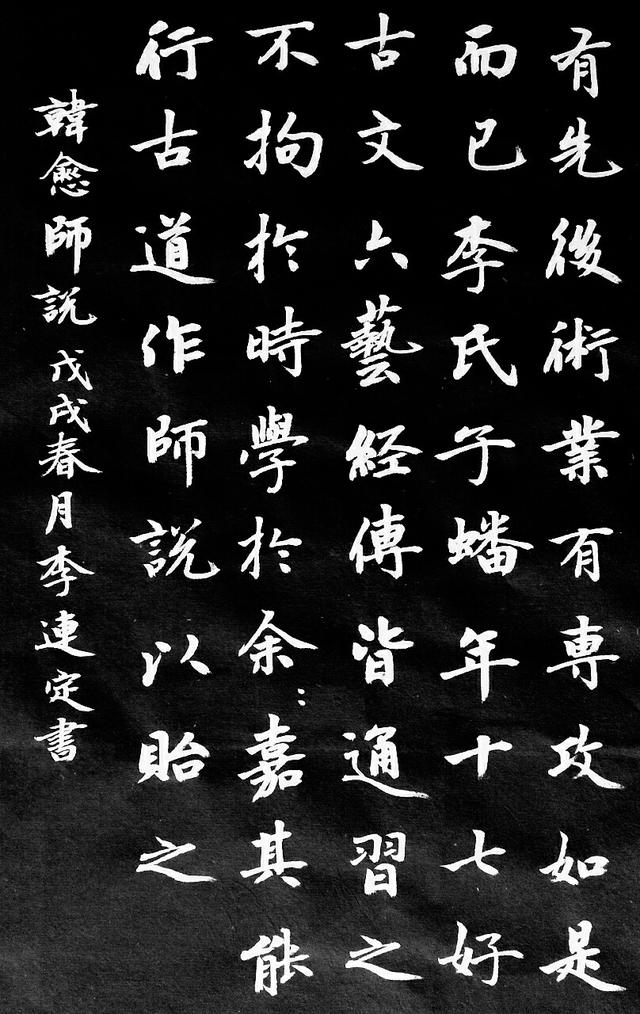 有先後術業有專攻如是
而已李氏子蟠年十七好
古文六藝經傳皆通習之
不拘於時學於余:嘉其能
行古道作師說以貽之
韓愈師說戊戌春月李連定書